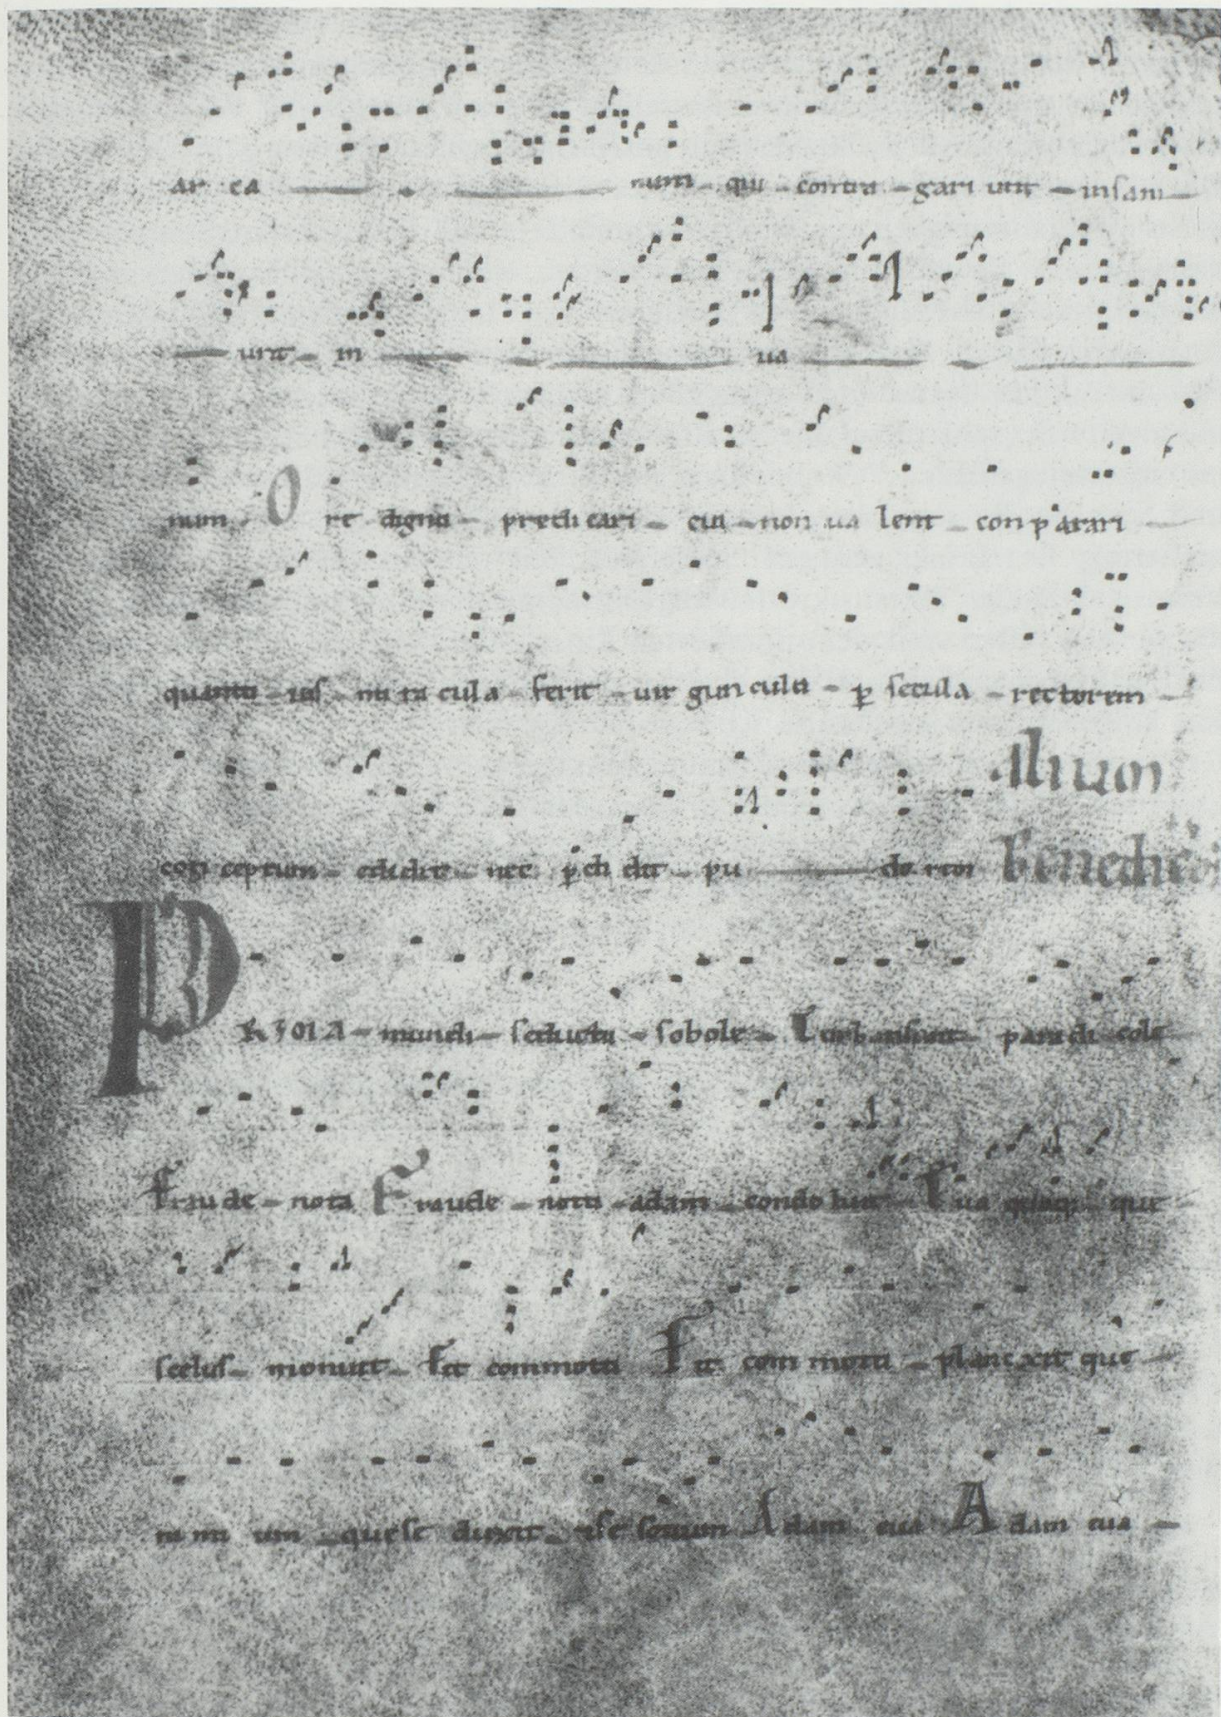 ar ca num qui contra gari unt insani
unt in ua
num O re digna predicari cui non ua lent con parari
quanta ius mi ra cula ferit uir gun cula per secula rectorem
con ceptum edidit nec perdi dit pu do rem Alium
Benedic
PRIMA mundi seducta sobole paradi cole
Fraude nota Fraude nota adam condo luit Eua quoque que
scelus monuit Fit commota Fit com mota planxit que
ni mi um que se duxit Adam eua Adam eua